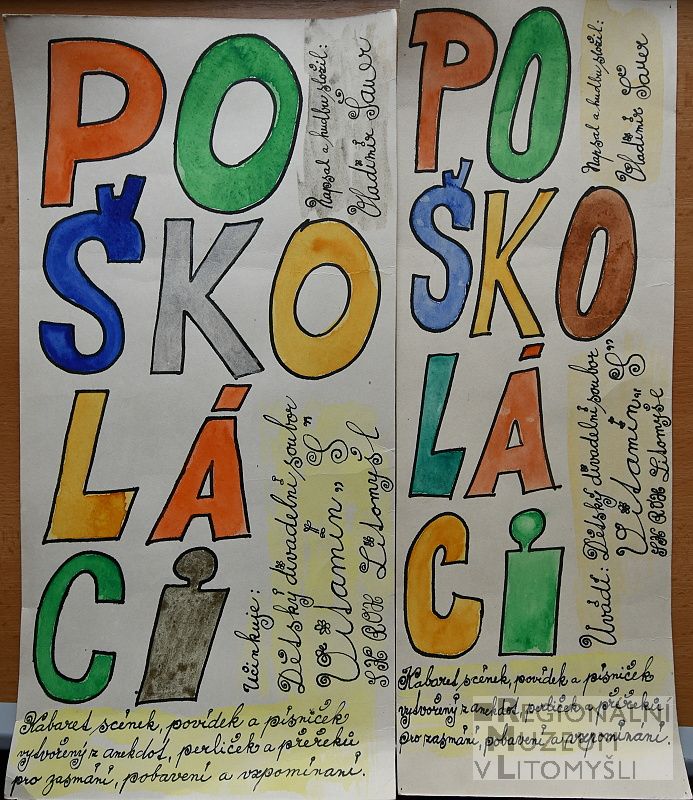 PO
ŠKO
LÁ
Ci
Napsal a hudbu složil:
Vladimír Šauer
Učinkuje:
Dětský divadelní soubor
"Vitamín „S“
SK ROH Litomyšl
Kabaret scének, povídek a písniček
vytvořený z anekdot, perliček a přeřeků
pro zasmání, pobavení a vzpomínaní.
PO
ŠKO
LÁ
Ci
Napsal a hudbu složil:
Vladimír Šauer
Uvádí: Dětský divadelní soubor
Vitamín „S”
SK ROH Litomyšl
Kabaret scének, povídek a písniček
vytvořený z anekdot, perliček a přeřeků
pro zasmání, pobavení a vzpomínaní.
REGIONÁLNÍ
MUZEUM
V LITOMYŠLI